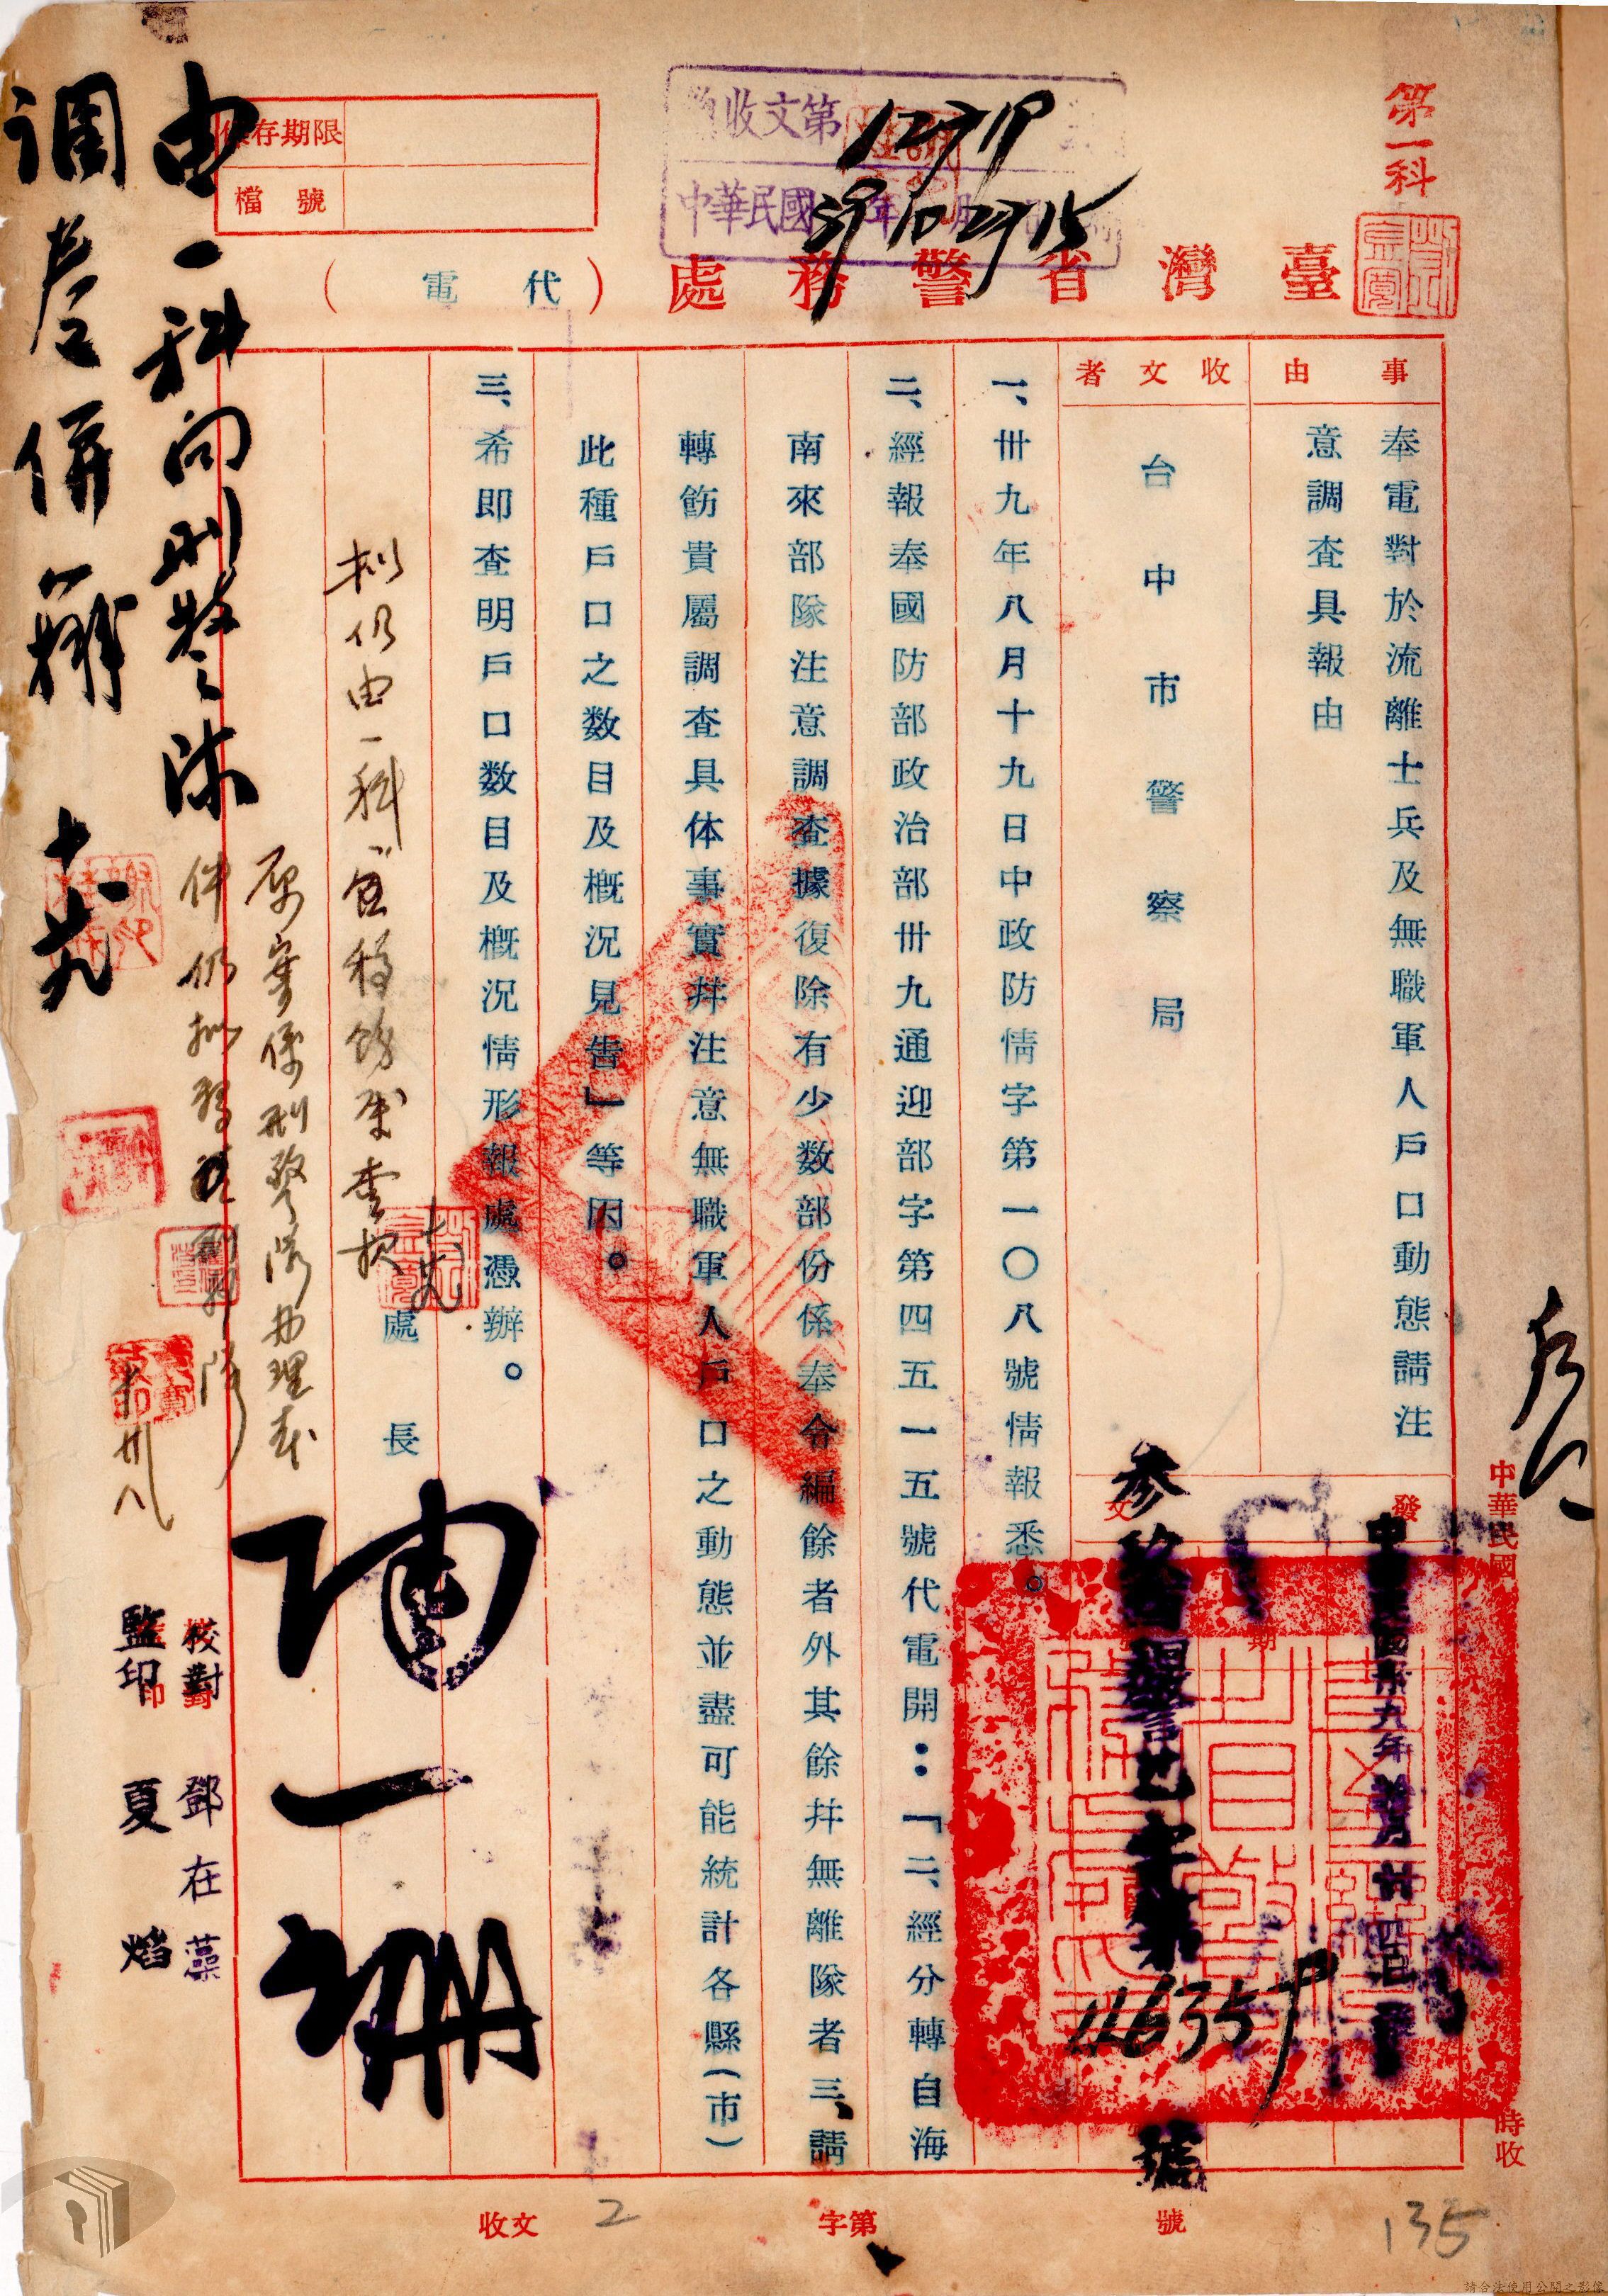 第一科
臺灣省警務處
（代電）
保存期限
檔號
收文第
中華民國 年 月
39 10 27 15
事由
奉電對於流離士兵及無職軍人戶口動態請注
意調查具報由
收文者
台中市警察局
中華民國
時收
發
文
期
中華民國卅九年拾月廿四日
字第
116357
號
一、卅九年八月十九日中政防情字第一〇八號情報悉。
二、經報奉國防部政治部卅九通迎部字第四五一五號代電開：「二、經分轉自海
南來部隊注意調查據復除有少数部份係奉令編餘者外其餘幷無離隊者三、請
轉飭貴屬調查具体事實幷注意無職軍人戶口之動態並盡可能統計各縣（市）
此種戶口之数目及概況見告」等因。
三、希即查明戶口数目及概況情形報處憑辦。
處長
陶一珊
擬仍由一科
原案係刑警隊办理本
件仍擬移
由一科向刑警隊
調卷併辦
校對 鄧在藻
監印 夏焰
收文
字第
號
2
135
請合法使用公開之影像